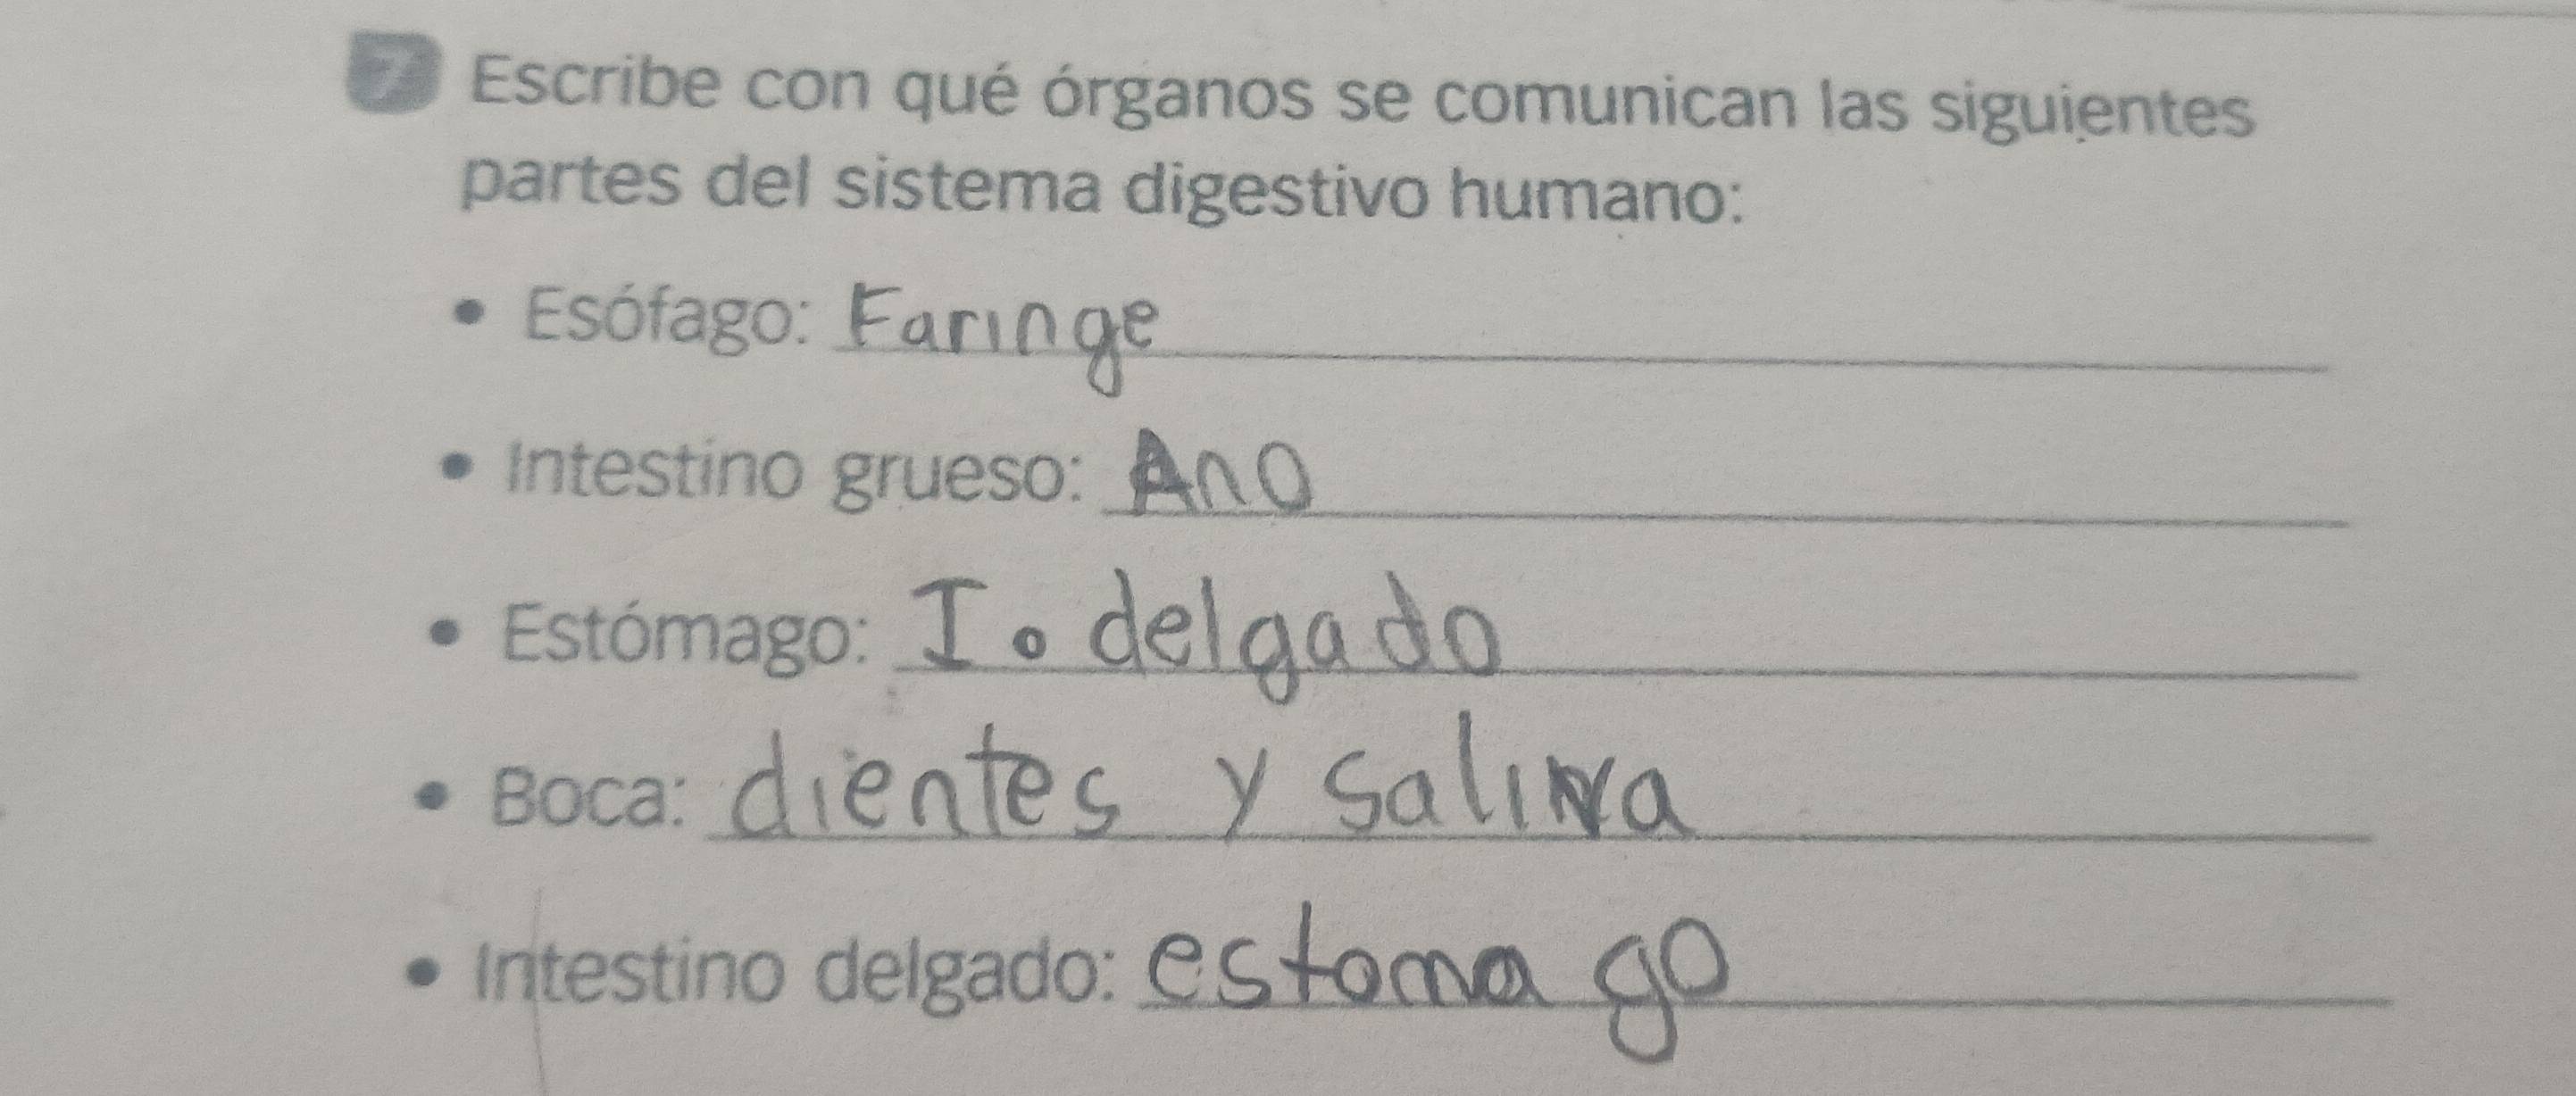 7 Escribe con qué órganos se comunican las siguientes
partes del sistema digestivo humano:
• Esófago: Faringe
• Intestino grueso: Ano
• Estómago: I. delgado
• Boca: dientes y saliva
• Intestino delgado: estoma go